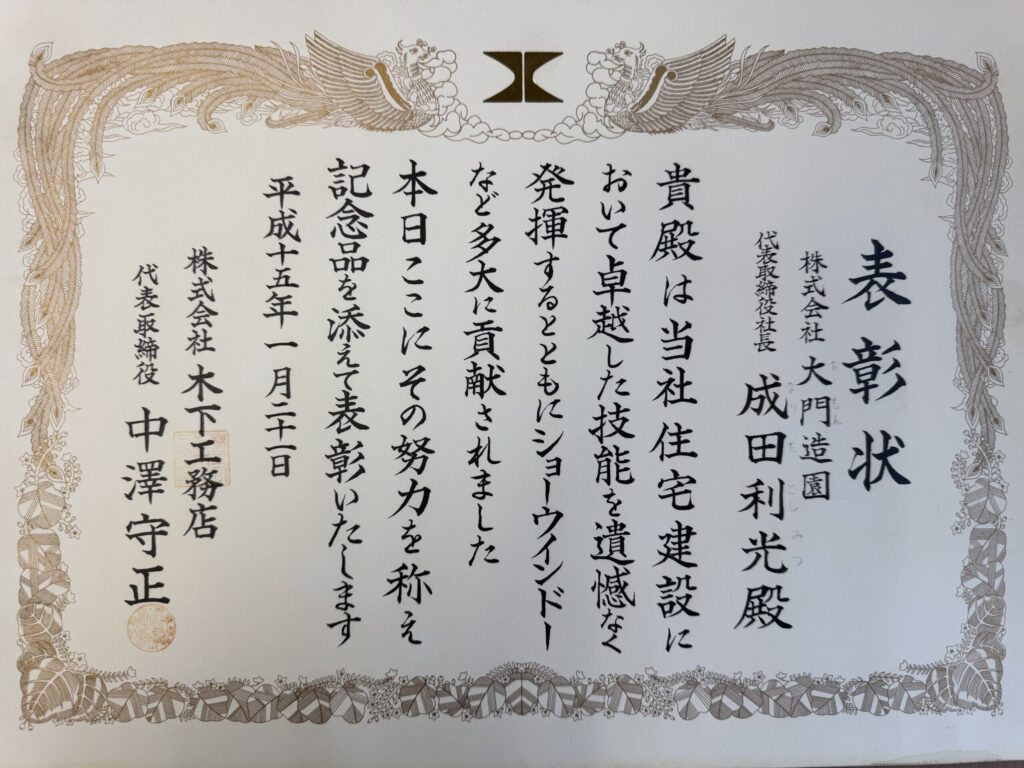 表彰状
株式会社 大門造園
代表取締役社長 成田利光殿
貴殿は当社住宅建設に
おいて卓越した技能を遺憾なく
発揮するとともにショーウインドー
など多大に貢献されました
本日ここにその努力を称え
記念品を添えて表彰いたします
平成十五年一月二十一日
株式会社 木下工務店
代表取締役 中澤守正